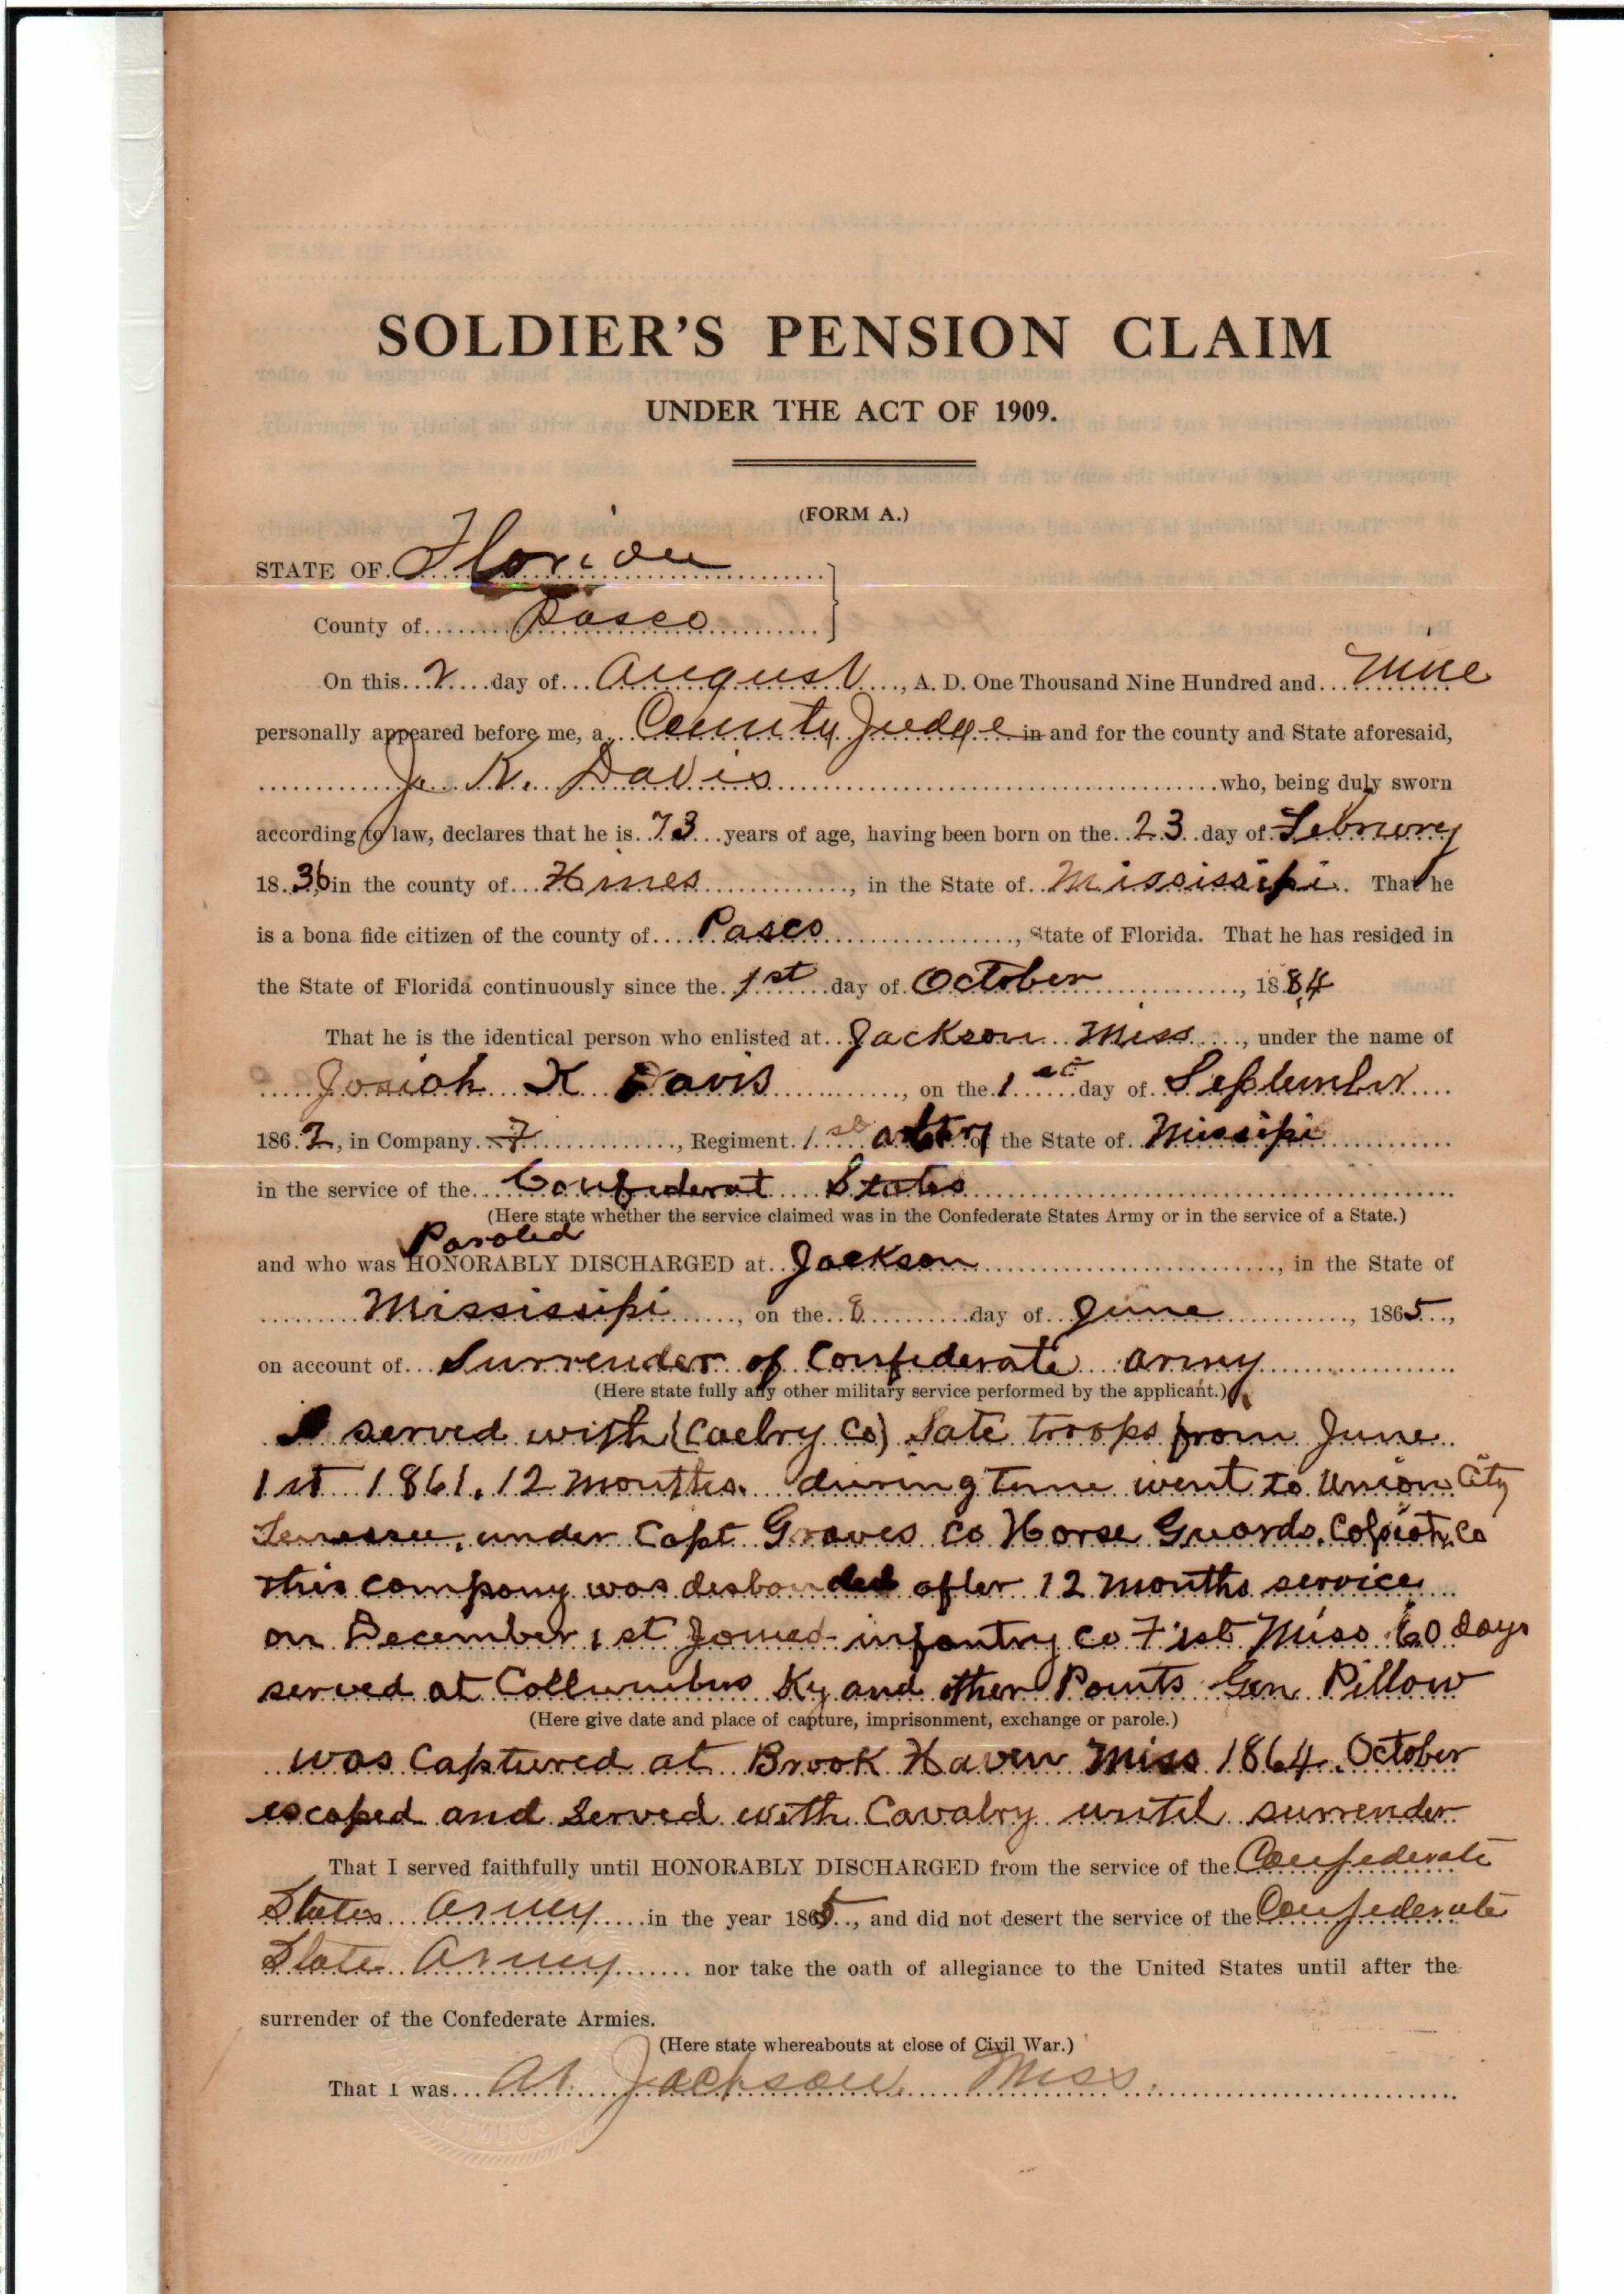 SOLDIER'S PENSION CLAIM
UNDER THE ACT OF 1909.
(FORM A.)
STATE OF Florida
County of Pasco
On this 2 day of August, A. D. One Thousand Nine Hundred and Nine
personally appeared before me, a County Judge in and for the county and State aforesaid,
J. K. Davis who, being duly sworn
according to law, declares that he is 73 years of age, having been born on the 23 day of Februory
1836 in the county of Hines, in the State of Mississipi. That he
is a bona fide citizen of the county of Pasco, State of Florida. That he has resided in
the State of Florida continuously since the 1st day of October, 1884
That he is the identical person who enlisted at Jackson Miss, under the name of
Josiah K Davis, on the 1st day of September
1862, in Company, Regiment 1st of the State of Missipi
in the service of the Confederat States
(Here state whether the service claimed was in the Confederate States Army or in the service of a State.)
Paroled
and who was HONORABLY DISCHARGED at Jackson, in the State of
Mississipi, on the 8 day of June, 1865,
on account of Surrender of Confederate army
(Here state fully any other military service performed by the applicant.)
I served with (Caelry Co) Sate troops from June
1st 1861. 12 months. during time went to Union City
under Capt Graves Co Horse Guards. Co
This company was desbanded after 12 months service
on December 1st Joined infantry Co F 1st Miss 60 days
served at Collumbus Ky and other Points Gen Pillow
(Here give date and place of capture, imprisonment, exchange or parole.)
was captured at Brook Haven Miss 1864. October
escaped and served with Cavalry until surrender
That I served faithfully until HONORABLY DISCHARGED from the service of the Confederate
States Army in the year 1865, and did not desert the service of the Confederate
State Army nor take the oath of allegiance to the United States until after the
surrender of the Confederate Armies.
(Here state whereabouts at close of Civil War.)
That I was At Jackson Miss.